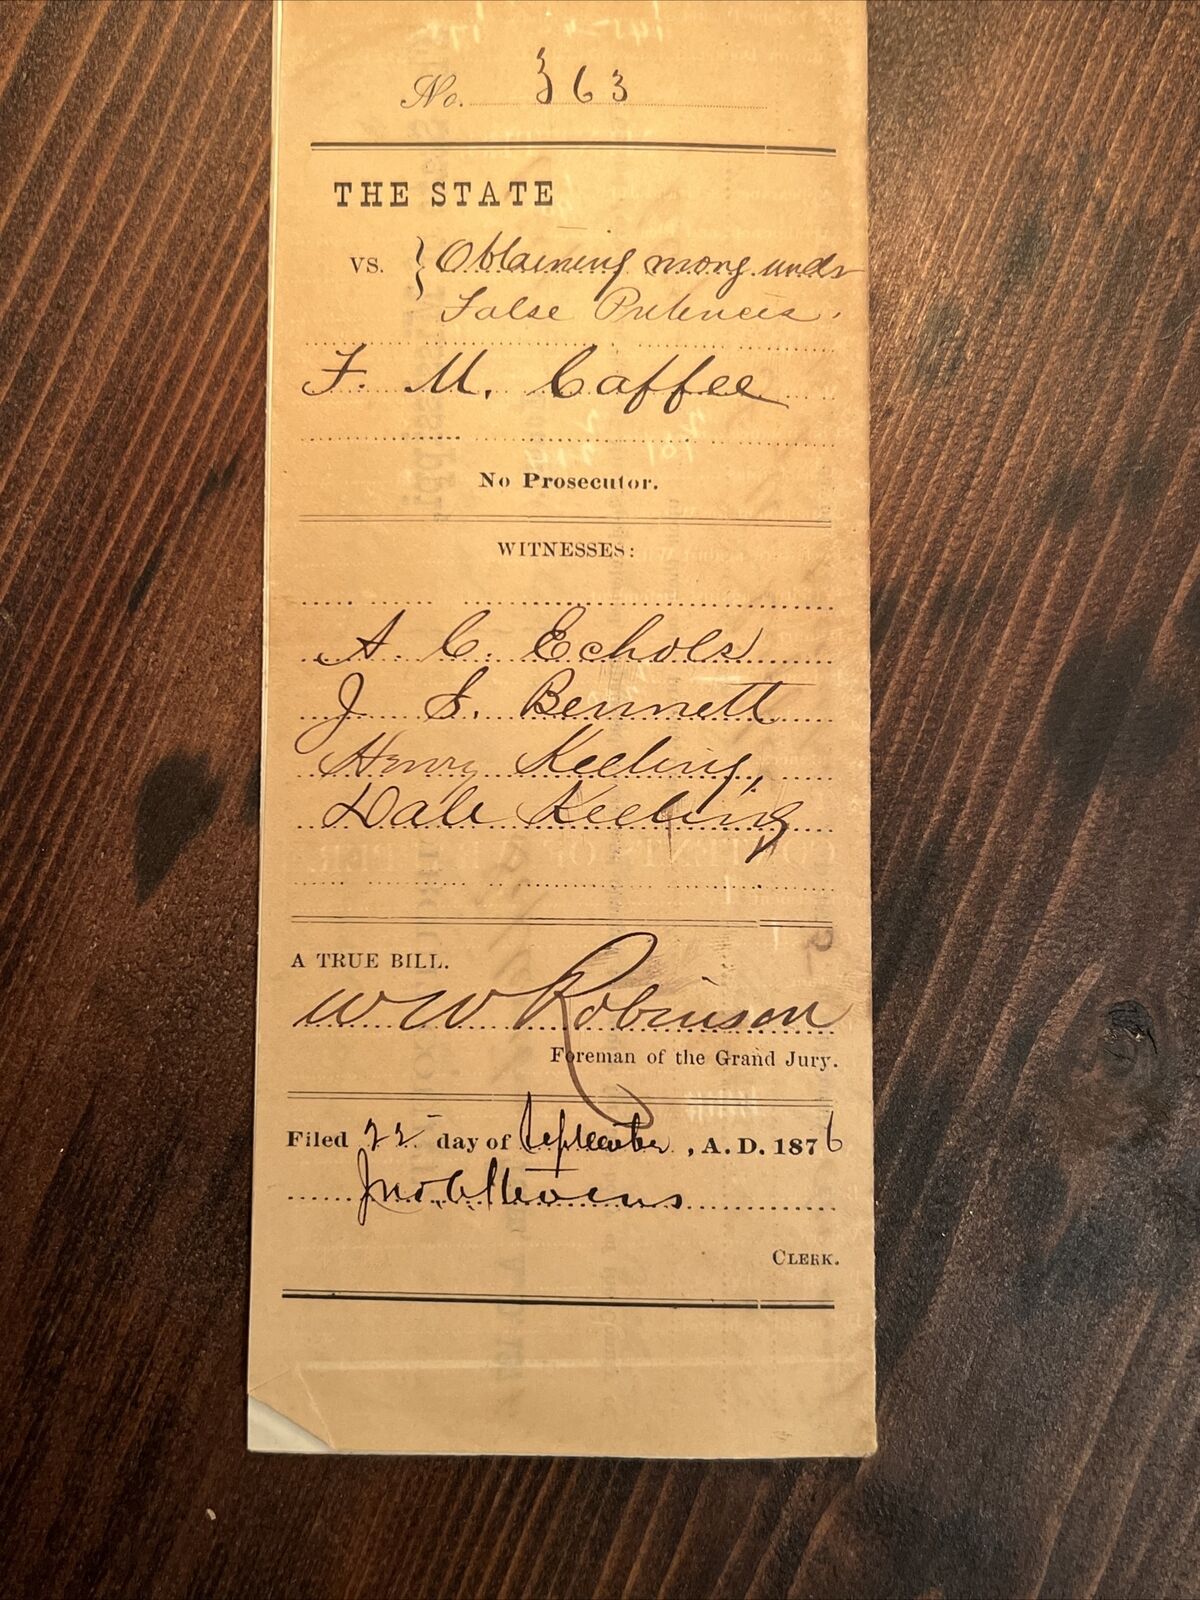 No. 363
THE STATE
VS. } Obtaining mony under
False Pretences.
F. M. Caffee
No Prosecutor.
WITNESSES:
A. C. Echols
J. S. Bennett
Henry Keeling,
Dale Keeling
A TRUE BILL.
W W Robinson
Foreman of the Grand Jury.
Filed 22 day of September, A. D. 1876
Jno. C. Stevens
CLERK.